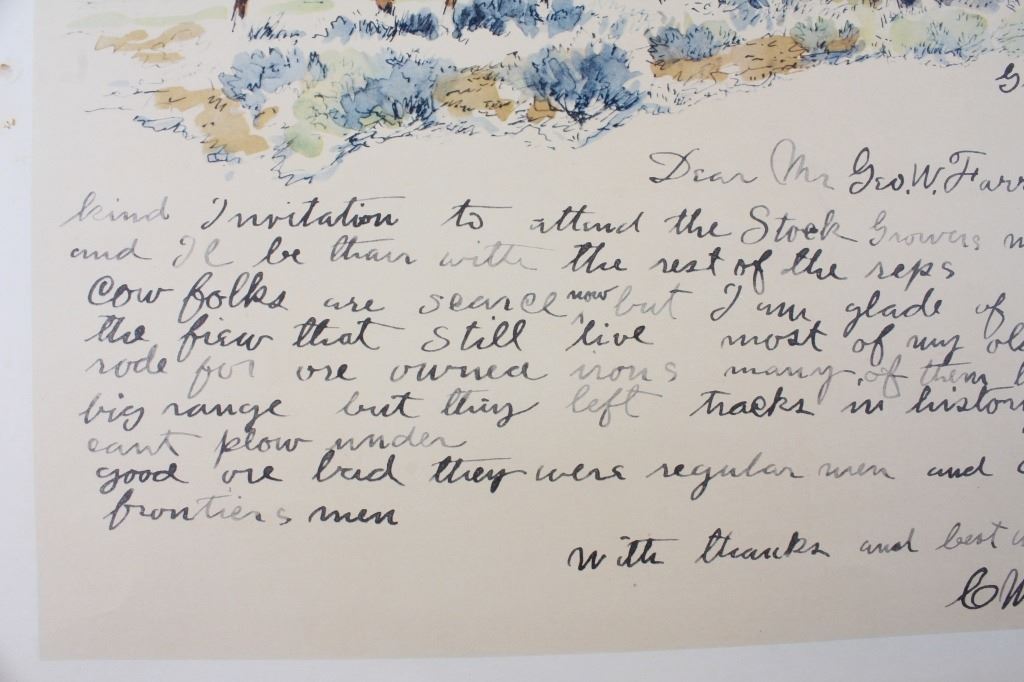 G
Dear Mr Geo. W. Farr
kind Invitation to attend the Stock Growers m
and Il be thair with the rest of the reps
Cow folks are scarce now but I am glade of
the fiew that Still live most of my old
rode for ore owned irons many of them
big range but they left tracks in histor
cant plow under
good ore bad they were regular men and
frontiers men
With thanks and best w
CM